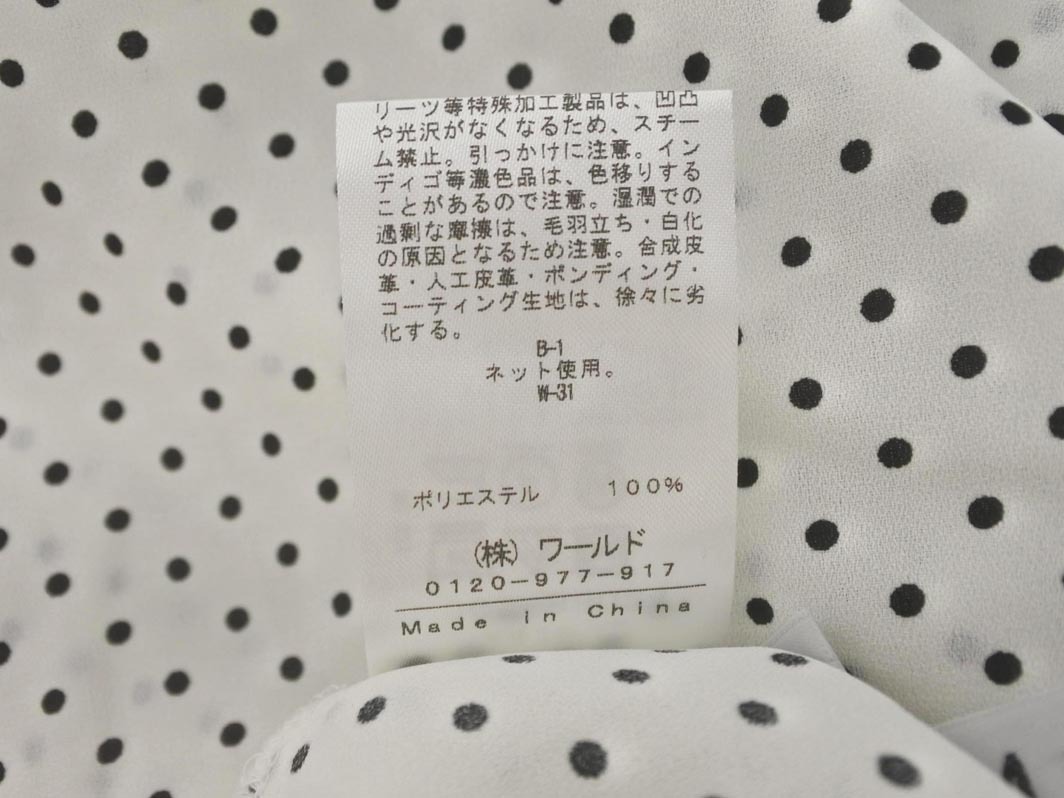 リーツ等特殊加工製品は、凹凸
や光沢がなくなるため、スチー
ム禁止。引っかけに注意。イン
ディゴ等濃色品は、色移りする
ことがあるので注意。湿潤での
過剰な摩擦は、毛羽立ち・白化
の原因となるため注意。合成皮
革・人工皮革・ボンディング・
コーティング生地は、徐々に劣
化する。
B-1
ネット使用。
W-31
ポリエステル 100%
(株) ワールド
0120-977-917
Made in China